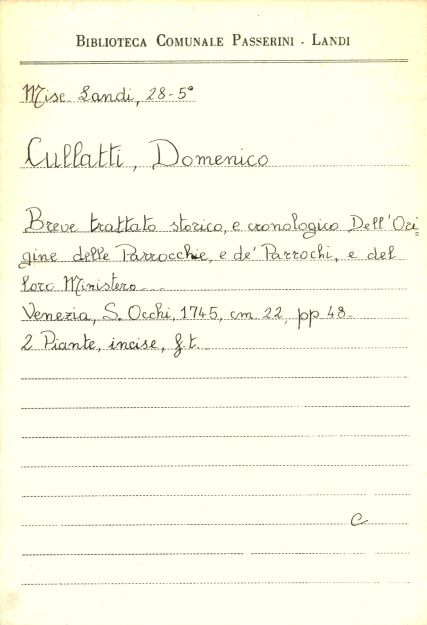 BIBLIOTECA COMUNALE PASSERINI - LANDI
Misc Landi, 28-5°
Cullatti, Domenico
Breve trattato storico, e cronologico Dell'Ori=
gine delle Parrocchie, e de' Parrochi, e del
loro Ministero...
Venezia, S. Occhi, 1745, cm 22, pp 48.
2 Piante, incise, f.t.
C